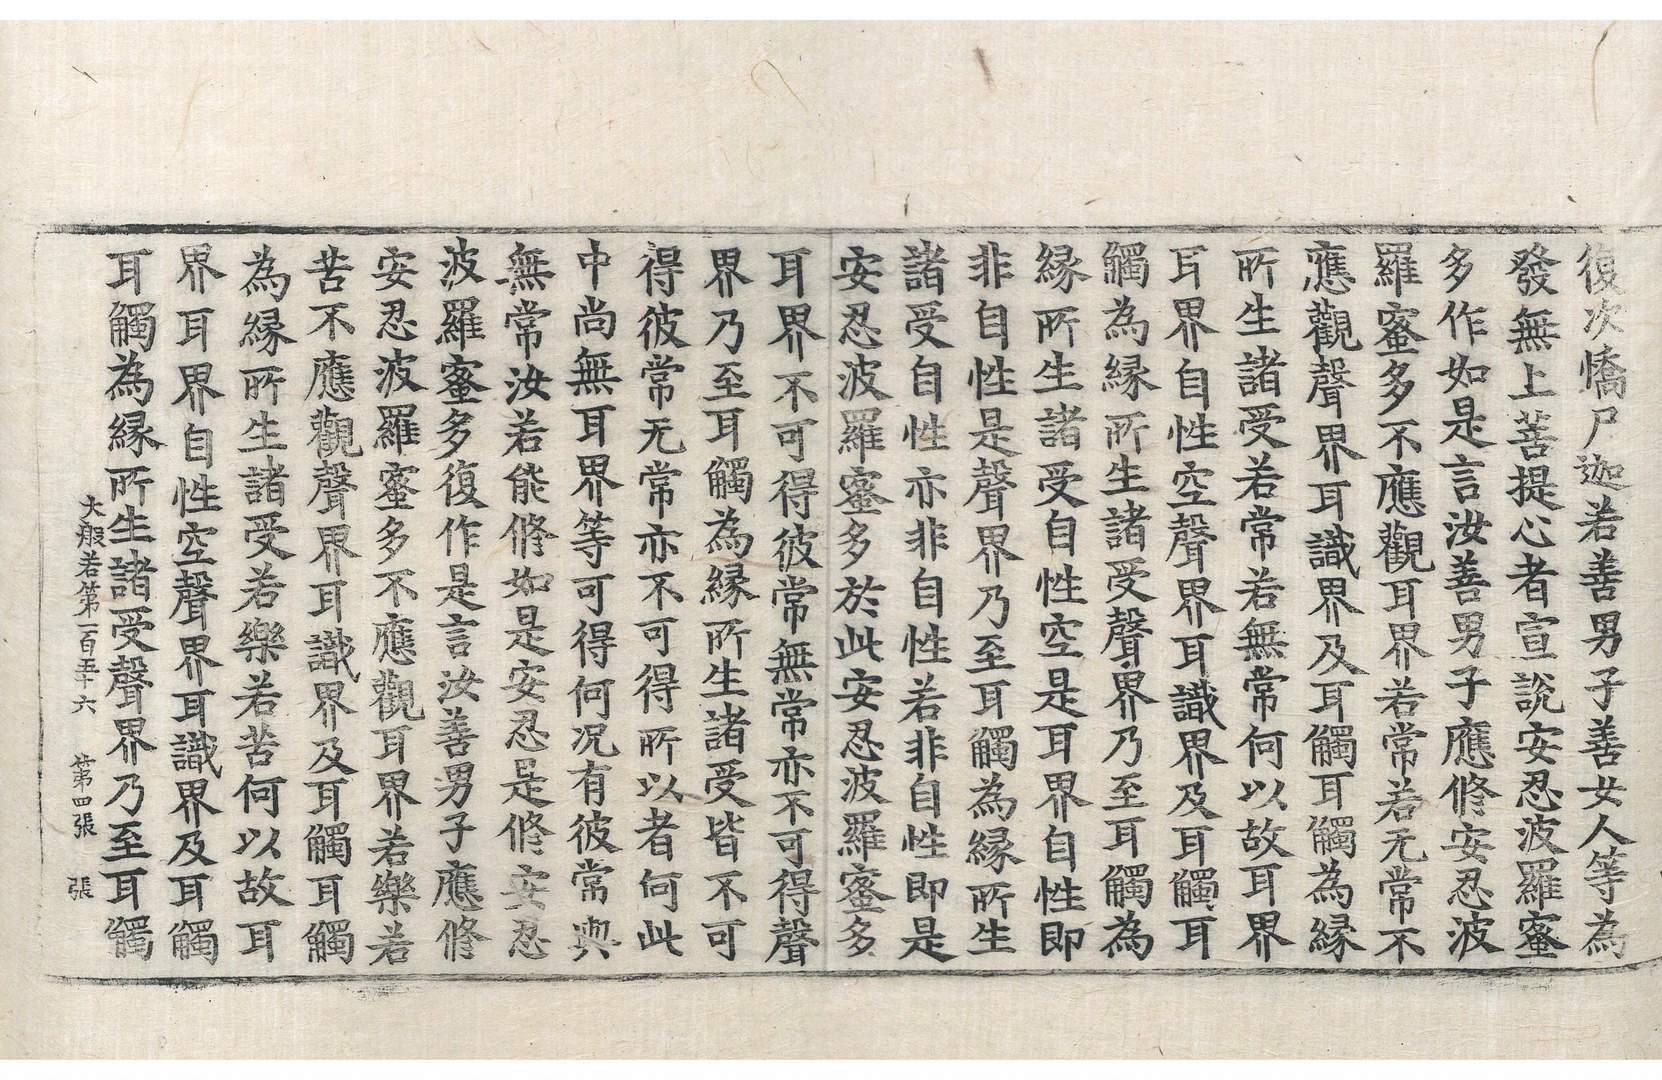 復次憍尸迦若善男子善女人等為
發無上菩提心者宣說安忍波羅蜜
多作如是言汝善男子應修安忍波
羅蜜多不應觀耳界若常若无常不
應觀聲界耳識界及耳觸耳觸為緣
所生諸受若常若無常何以故耳界
耳界自性空聲界耳識界及耳觸耳
觸為緣所生諸受聲界乃至耳觸為
緣所生諸受自性空是耳界自性即
非自性是聲界乃至耳觸為緣所生
諸受自性亦非自性若非自性即是
安忍波羅蜜多於此安忍波羅蜜多
耳界不可得彼常無常亦不可得聲
界乃至耳觸為緣所生諸受皆不可
得彼常无常亦不可得所以者何此
中尚無耳界等可得何况有彼常與
無常汝若能修如是安忍是修安忍
波羅蜜多復作是言汝善男子應修
安忍波羅蜜多不應觀耳界若樂若
苦不應觀聲界耳識界及耳觸耳觸
為緣所生諸受若樂若苦何以故耳
界耳界自性空聲界耳識界及耳觸
耳觸為緣所生諸受聲界乃至耳觸
大般若第一百五十六 第四張 張